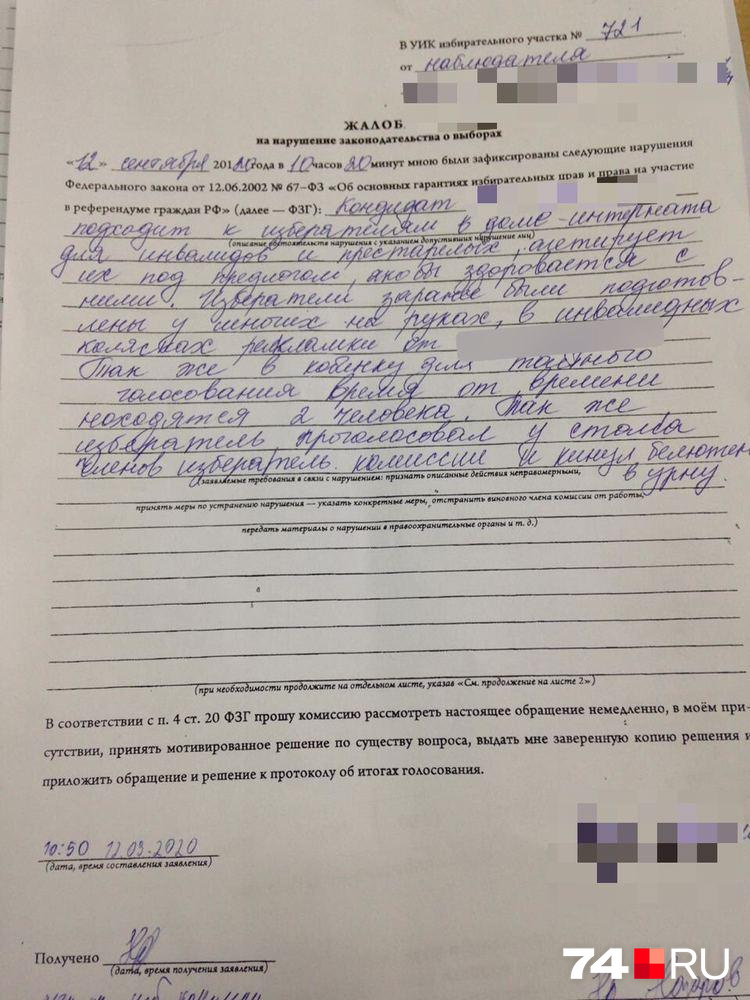 В УИК избирательного участка № 721
от наблюдателя
ЖАЛОБ
на нарушение законодательства о выборах
«12» сентября 2020 года в 10 часов 20 минут мною были зафиксированы следующие нарушения
Федерального закона от 12.06.2002 № 67–ФЗ «Об основных гарантиях избирательных прав и права на участие
в референдуме граждан РФ» (далее — ФЗГ): Кондидат
подходит к изберателям в домо-интерната
(описание обстоятельств нарушения с указанием допустивших нарушение лиц)
для инвалидов и престарелых, агетирует
их под предлогом, якобы здоровается с
ними. Избератели заранее были подготов-
лены у многих на руках, в инвалидных
колясках рекламки от
Так же в кобинку для тайного
голосования время от времени
находятся 2 человека. Так же
избератель проголосовал у стола
членов избератель. комиссии и кинул белютень
(заявляемые требования в связи с нарушением: признать описанные действия неправомерными,
в урну.
принять меры по устранению нарушения — указать конкретные меры, отстранить виновного члена комиссии от работы,
передать материалы о нарушении в правоохранительные органы и т. д.)
(при необходимости продолжите на отдельном листе, указав «См. продолжение на листе 2»)
В соответствии с п. 4 ст. 20 ФЗГ прошу комиссию рассмотреть настоящее обращение немедленно, в моём при-
сутствии, принять мотивированное решение по существу вопроса, выдать мне заверенную копию решения и
приложить обращение и решение к протоколу об итогах голосования.
10:50 12.09.2020
(дата, время составления заявления)
Получено
(дата, время получения заявления)
74.RU